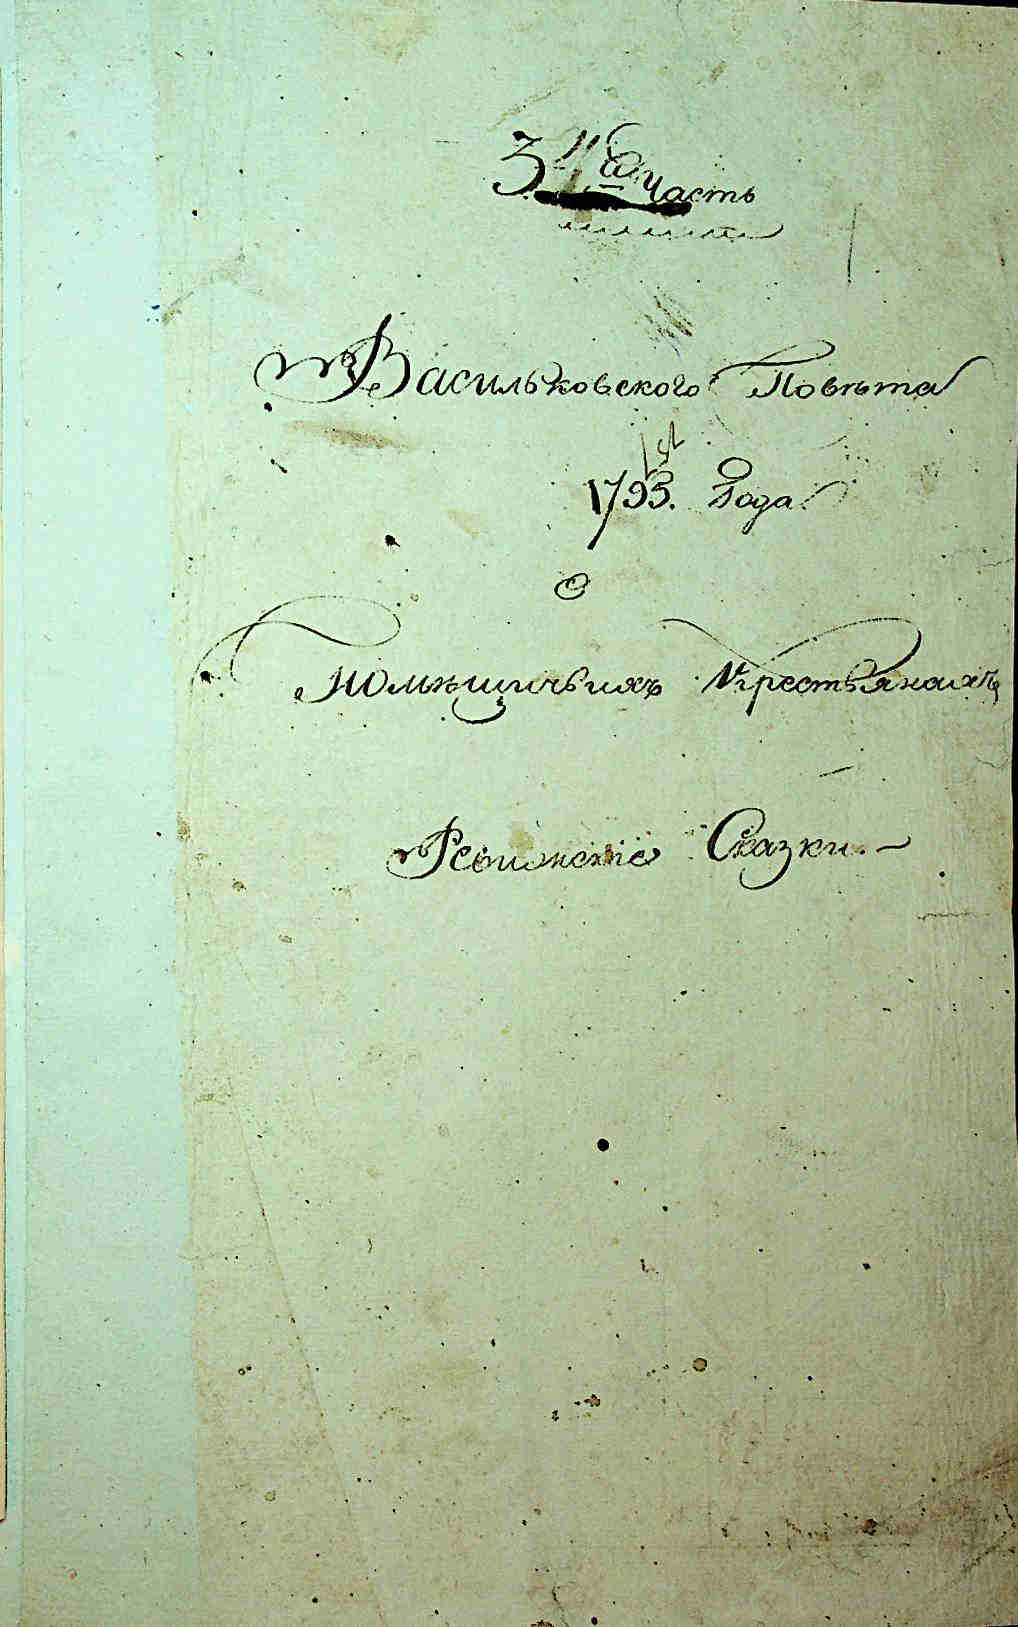 3 я Часть
Васильковского Повѣта
1795. Года.
О
Помѣщичьихъ Крестьянахъ
Ревижскіе Сказки. –